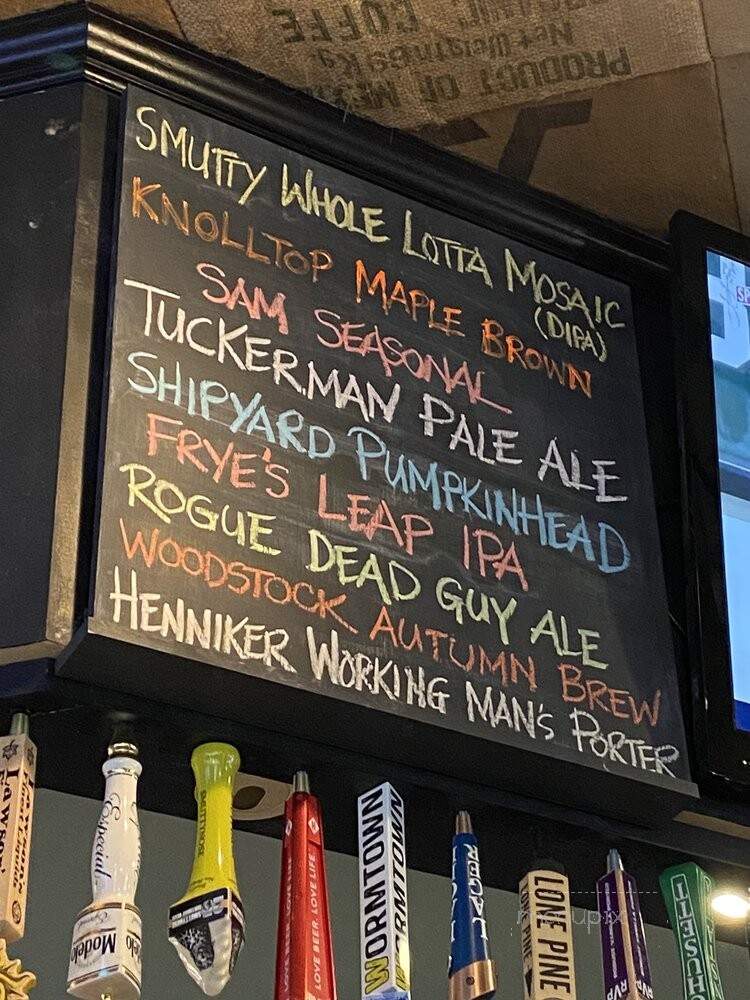 COFFE
Net Weight 69 Kg.
PRODUCT OF ME
SMUTTY WHOLE LOTTA MOSAIC
(DIPA)
KNOLLTOP MAPLE BROWN
SAM SEASONAL
TUCKERMAN PALE ALE
SHIPYARD PUMPKINHEAD
FRYE'S LEAP IPA
ROGUE DEAD GUY ALE
WOODSTOCK AUTUMN BREW
HENNIKER WORKING MAN'S PORTER
Lawson's
Especial
Modelo
SMUTTYNOSE
LOVE BEER. LOVE LIFE.
WORMTOWN
WORMTOWN
JACK'S
LOVE PINE
RVP